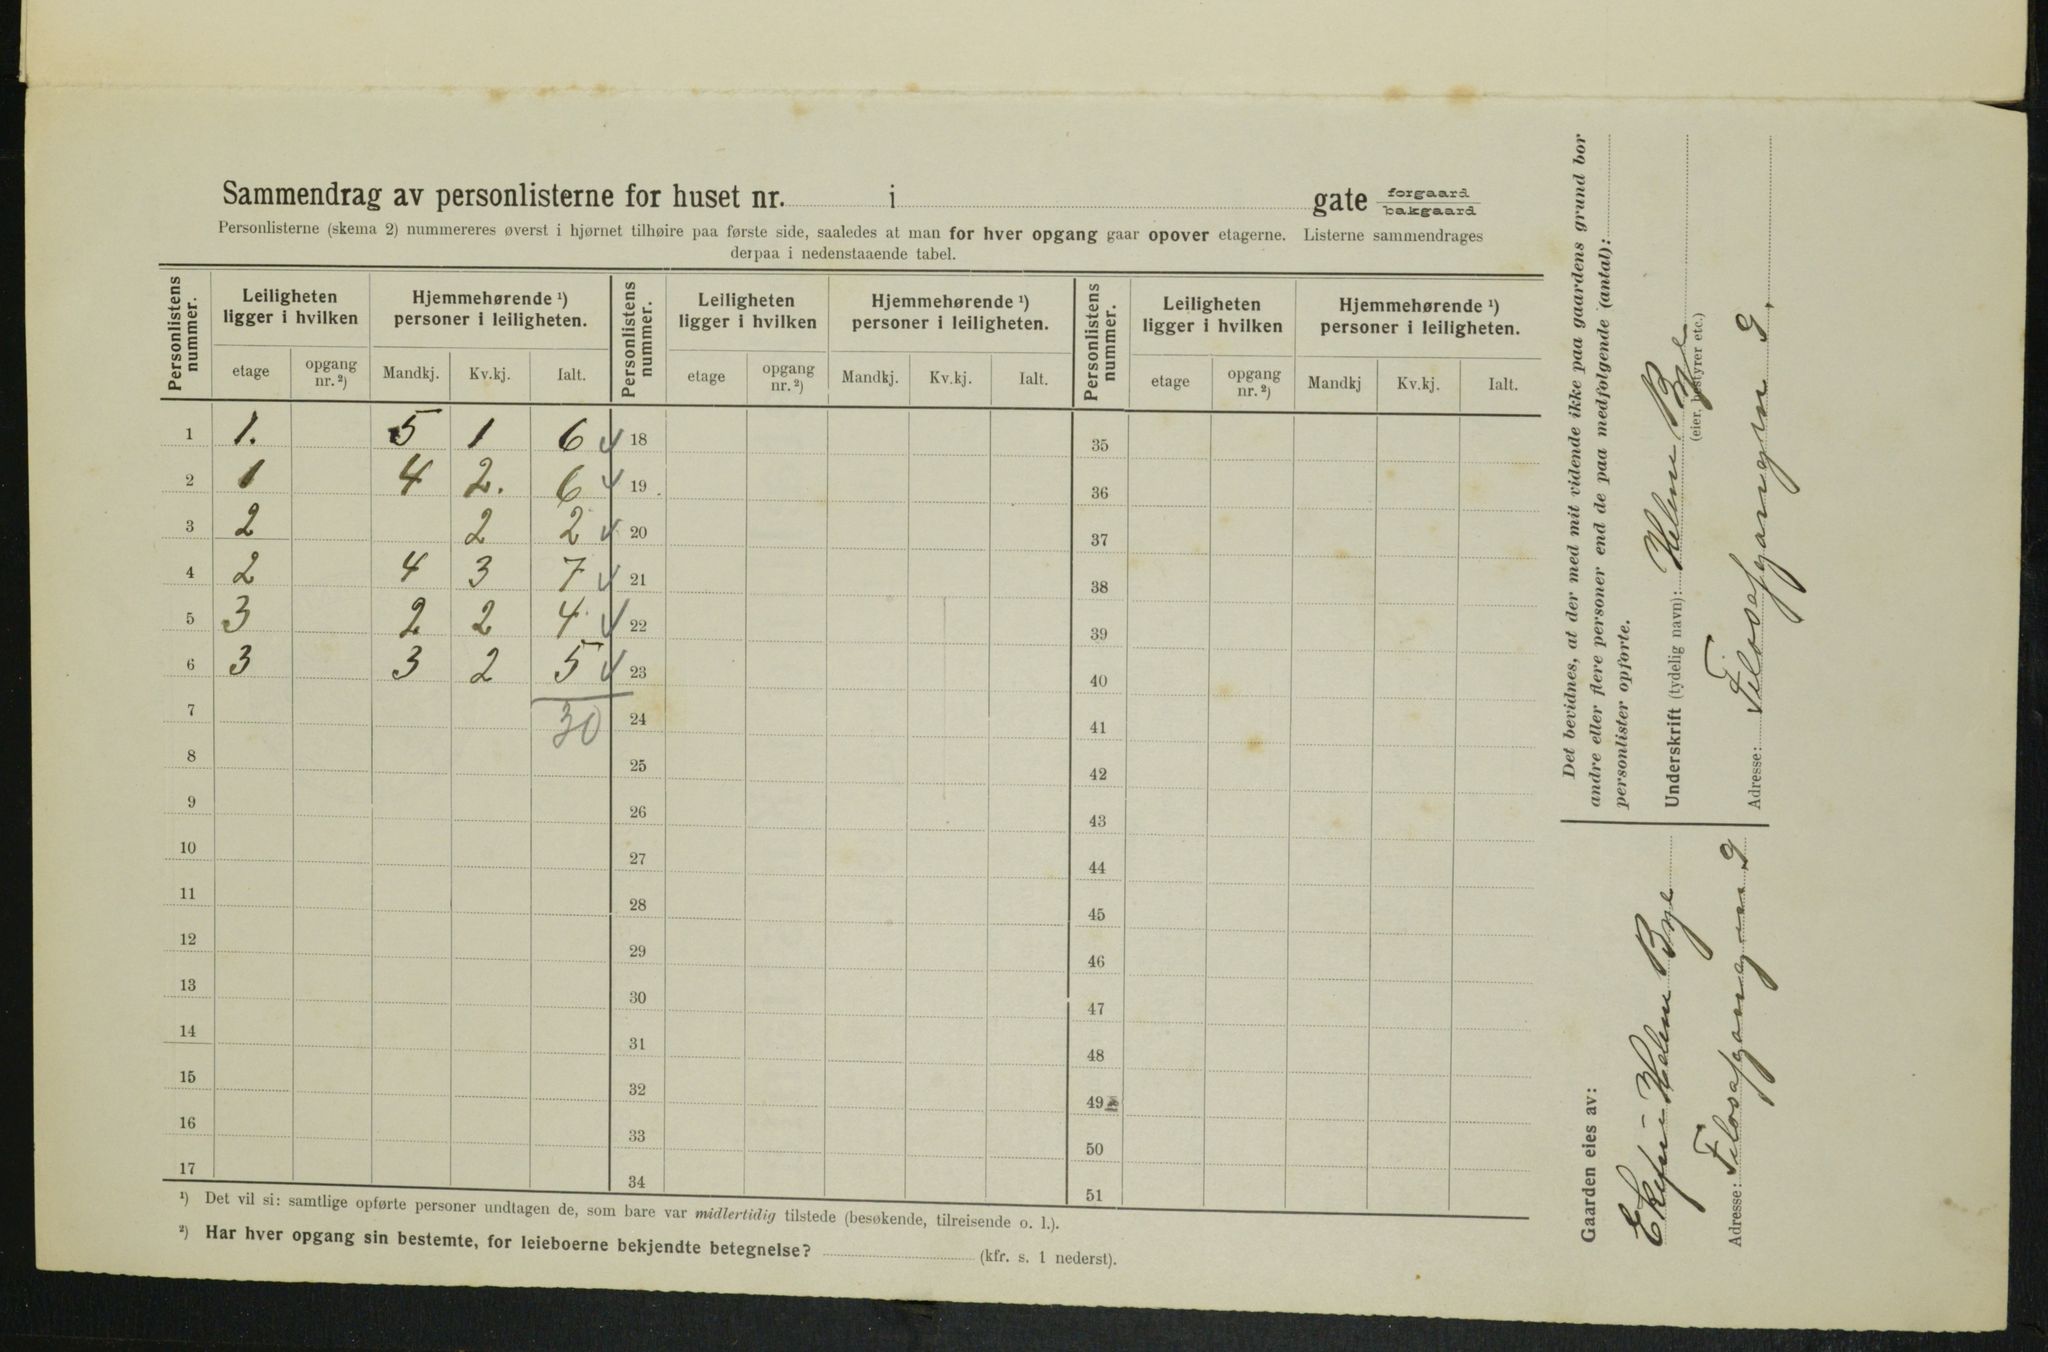 Sammendrag av personlisterne for huset nr. i gate forgaard bakgaard
Personlisterne (skema 2) nummereres øverst i hjørnet tilhøire paa første side, saaledes at man for hver opgang gaar opover etagerne. Listerne sammendrages
derpaa i nedenstaaende tabel.
Personlistens nummer. Leiligheten ligger i hvilken Hjemmehørende ¹) personer i leiligheten. Personlistens nummer. Leiligheten ligger i hvilken Hjemmehørende ¹) personer i leiligheten. Personlistens nummer. Leiligheten ligger i hvilken Hjemmehørende ¹) personer i leiligheten.
etage opgang nr. ²) Mandkj. Kv.kj. Ialt. etage opgang nr. ²) Mandkj. Kv.kj. Ialt. etage opgang nr. ²) Mandkj Kv.kj. Ialt.
1 1. 5 1 6 ✓ 18 35
2 1 4 2. 6 ✓ 19 36
3 2 2 2 ✓ 20 37
4 2 4 3 7 ✓ 21 38
5 3 2 2 4 ✓ 22 39
6 3 3 2 5 ✓ 23 40
7 30 24 41
8 25 42
9 26 43
10 27 44
11 28 45
12 29 46
13 30 47
14 31 48
15 32 49
16 33 50
17 34 51
¹) Det vil si: samtlige opførte personer undtagen de, som bare var midlertidig tilstede (besøkende, tilreisende o. l.).
²) Har hver opgang sin bestemte, for leieboerne bekjendte betegnelse? (kfr. s. 1 nederst).
Gaarden eies av:
Helen Bye
Adresse: Filosofgangen 9
Det bevidnes, at der med mit vidende ikke paa gaardens grund bor
andre eller flere personer end de paa medfølgende (antal):
personlister opførte.
Underskrift (tydelig navn): Helen Bye
(eier, bestyrer etc.)
Adresse: Filosofgangen 9.